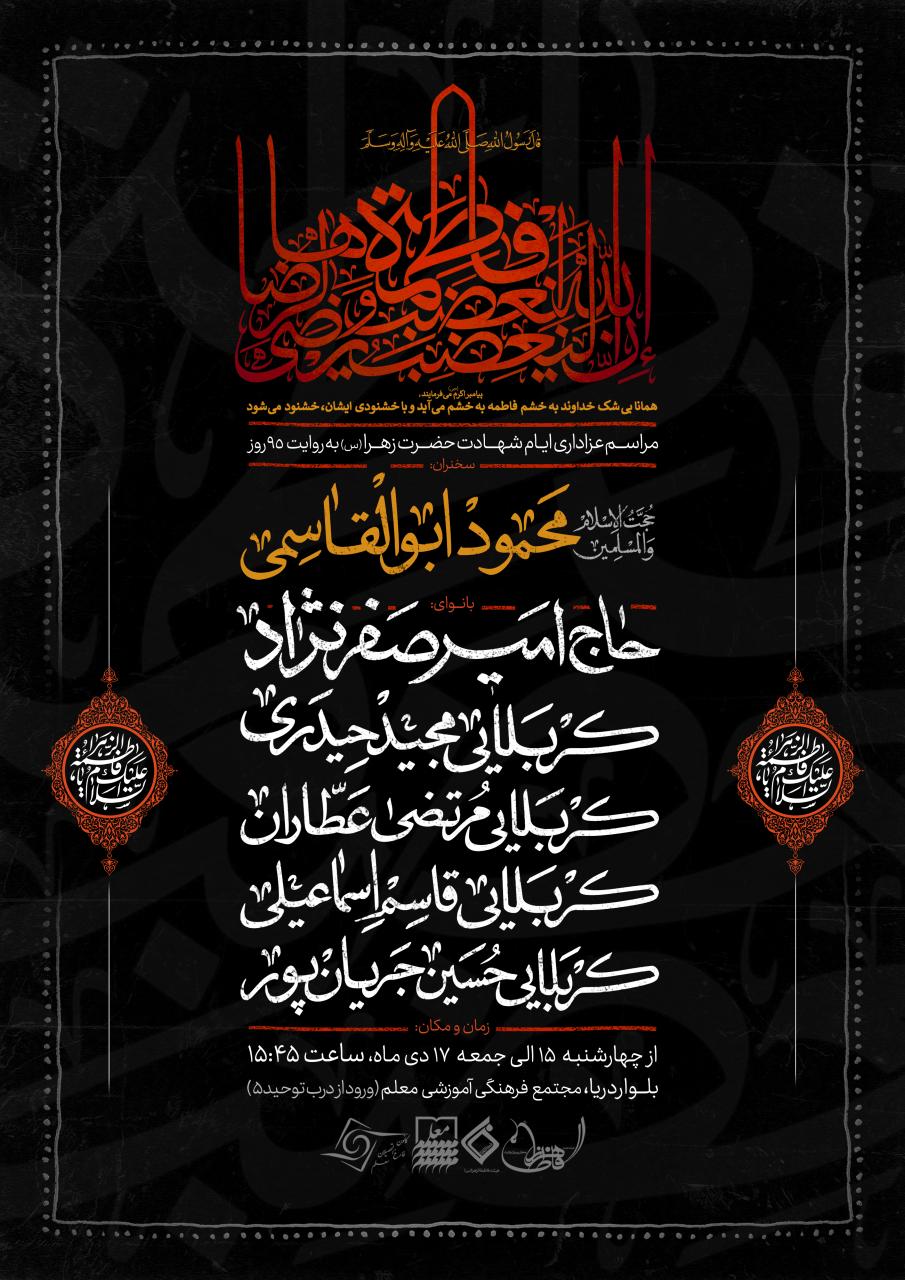 قال رسول الله صلی الله علیه وآله وسلم
إن الله لیغضب لغضب فاطمة ویرضی لرضاها
پیامبر اکرم (ص) می‌فرمایند:
همانا بی شک خداوند به خشم فاطمه به خشم می‌آید و با خشنودی ایشان، خشنود می‌شود
مراسم عزاداری ایام شهادت حضرت زهرا (س) به روایت ۹۵ روز
سخنران:
حجت الاسلام والمسلمین محمود ابوالقاسمی
بانوای:
حاج امیر صفرنژاد
کربلایی مجید حیدری
کربلایی مرتضی عطاران
کربلایی قاسم اسماعیلی
کربلایی حسین جریان پور
السلام علیک یا فاطمة الزهراء
السلام علیک یا فاطمة الزهراء
زمان و مکان:
از چهارشنبه ۱۵ الی جمعه ۱۷ دی ماه، ساعت ۱۵:۴۵
بلوار دریا، مجتمع فرهنگی آموزشی معلم (ورود از درب توحید ۵)
معلم